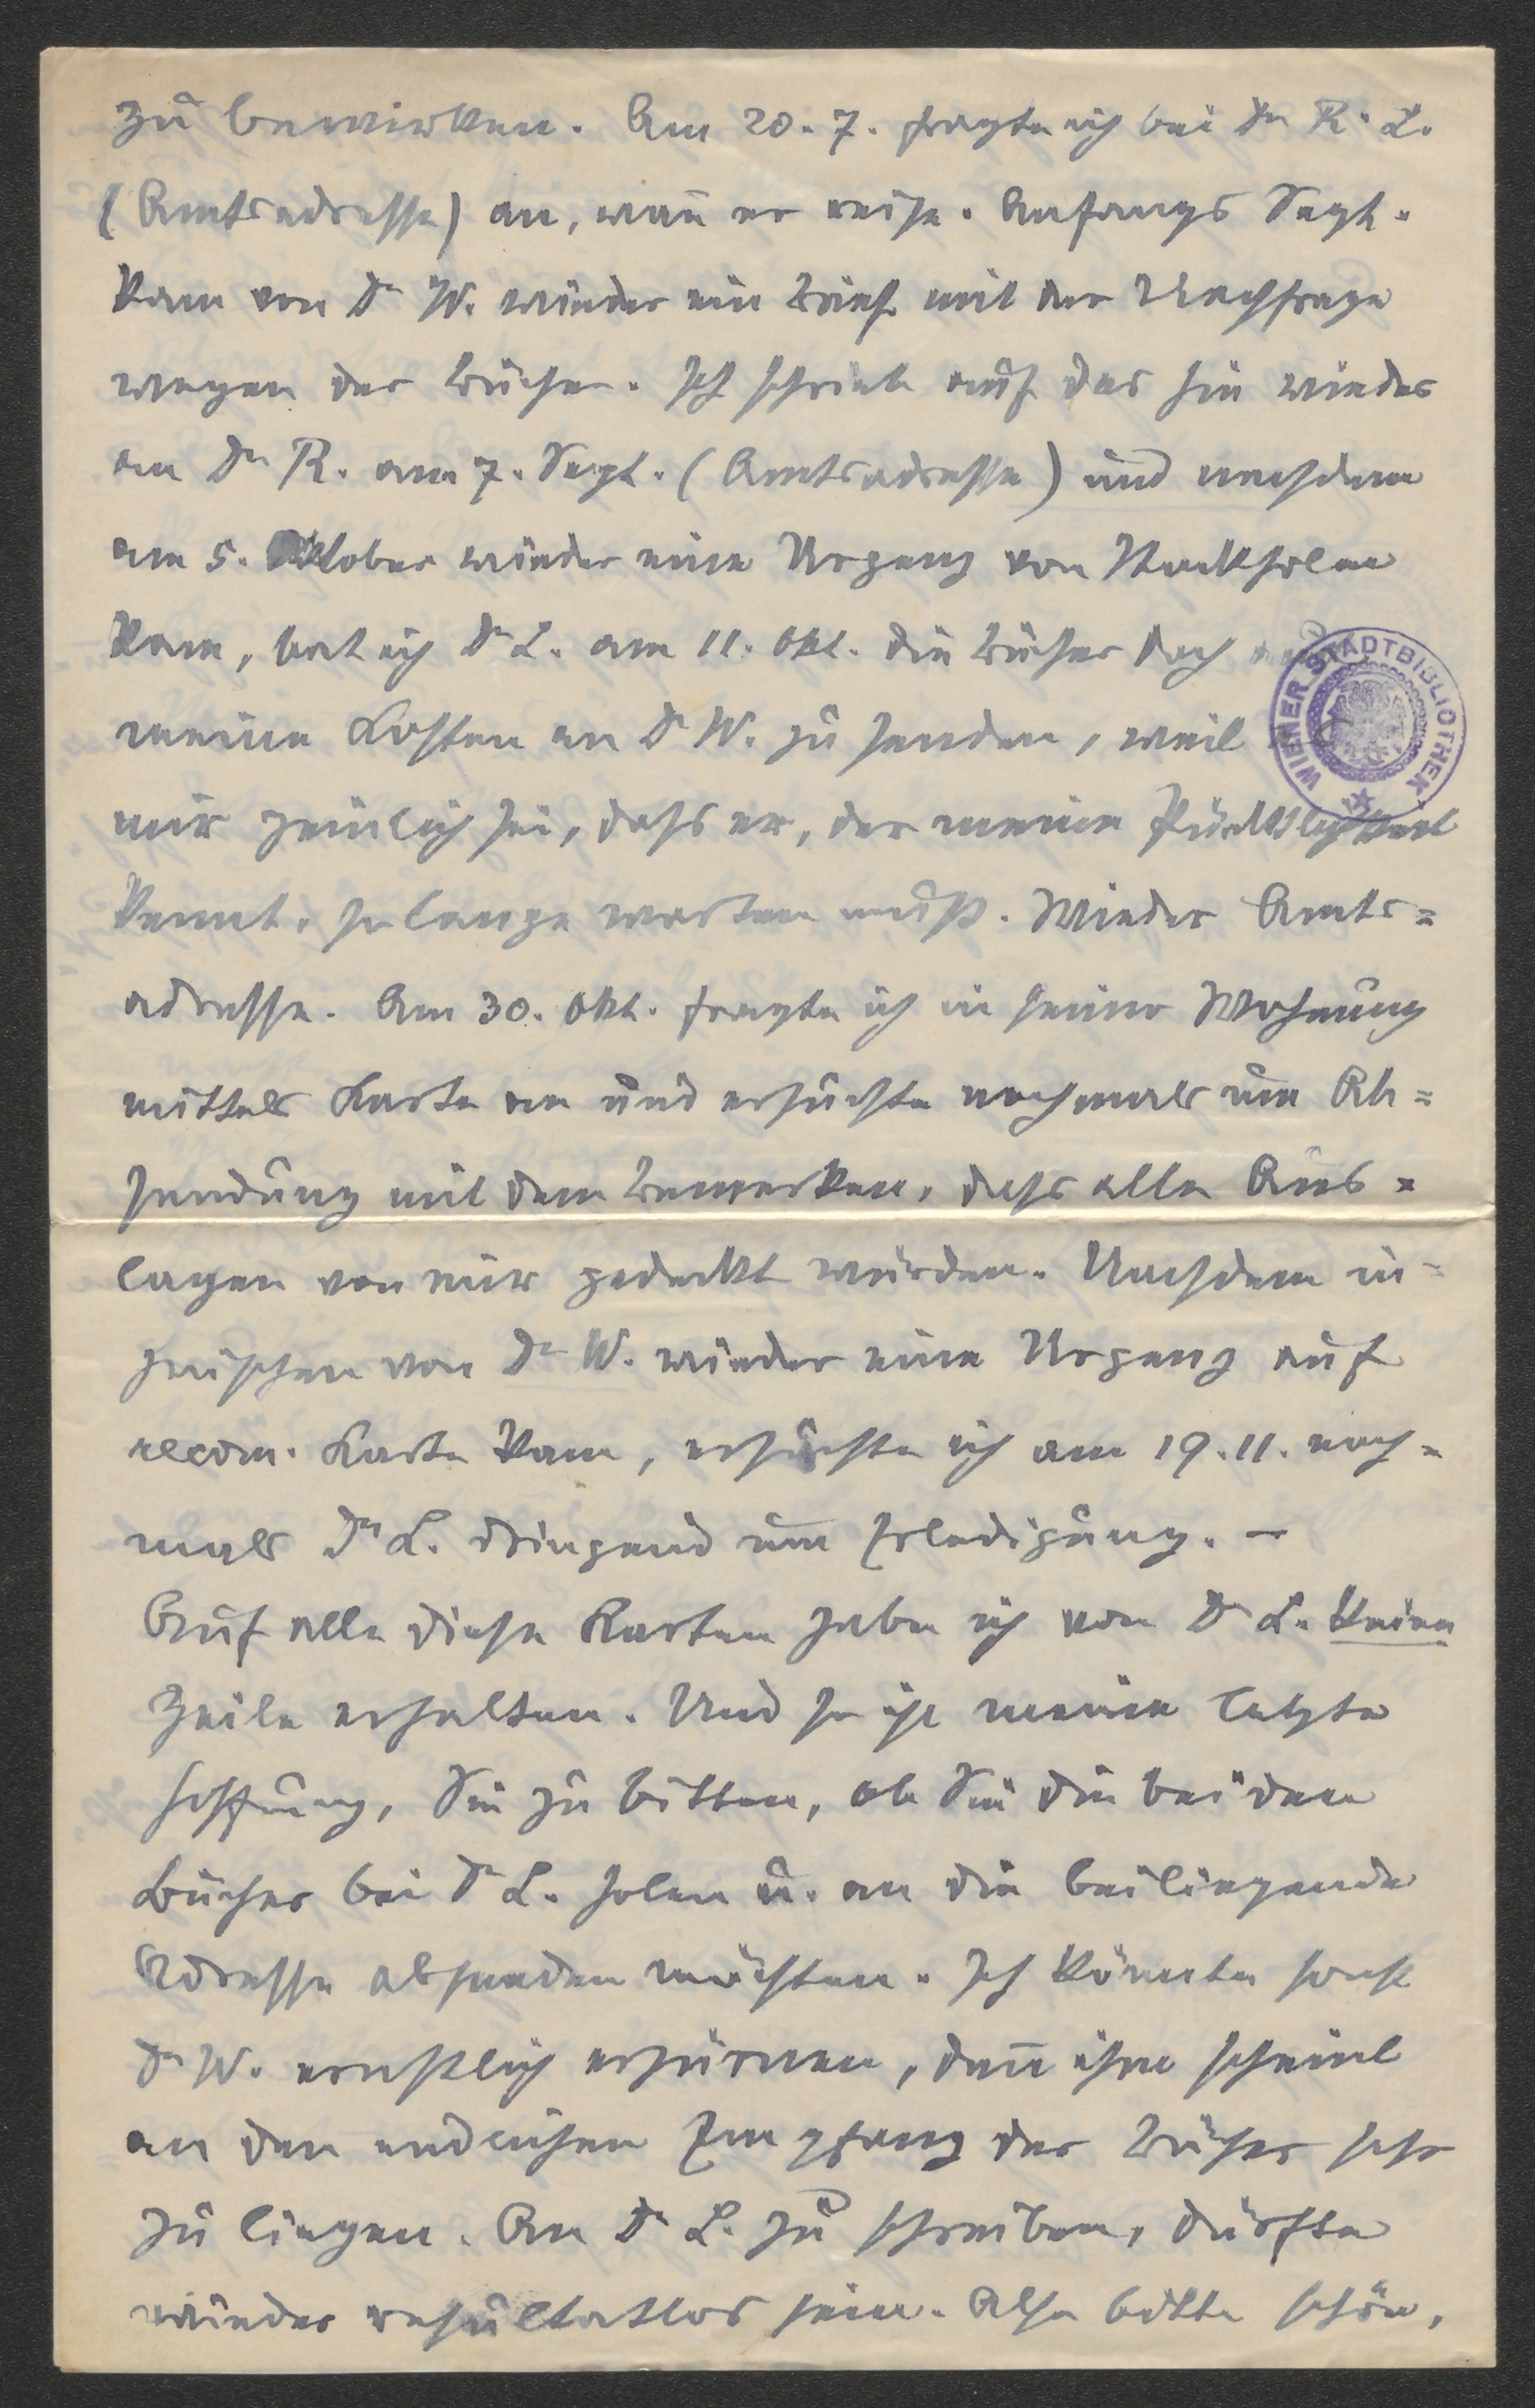 zu bewirken. Am 20. 7. fragte ich bei Dr R. L.
(Amtsadresse) an, wañ er reise. Anfangs Sept.
kam von Dr W. wieder ein Brief mit der Nachfrage
wegen der Bücher. Ich schrieb auf das hin wieder
an Dr R. am 7. Sept. (Amtsadresse) und nachdem
am 5. Oktober wieder eine Urgenz von Stockholm
kam, bat ich Dr L. am 11. Okt. die Bücher doch auf
meine Kosten an Dr W. zu senden, weil
mir peinlich sei, dass er, der meine Pünktlichkeit
kennt, so lange warten muß. Wieder Amts=
adresse. Am 30. Okt. fragte ich in seiner Wohnung
mittels Karte an und ersuchte nochmals um Ab=
sendung mit dem Bemerken, dass alle Aus=
lagen von mir gedeckt würden. Nachdem in-
zwischen von Dr W. wieder eine Urgenz auf
recom. Karte kam, ersuchte ich am 19. 11. noch=
mals Dr L. dringend um Erledigung. –
Auf alle diese Karten habe ich von Dr L. keine
Zeile erhalten. Und so ist meine letzte
Hoffnung, Sie zu bitten, ob Sie die beiden
Bücher bei Dr L. holen u. an die beiliegende
Adresse absenden möchten. Ich könnte sonst
Dr W. ernstlich erzürnen, deñ ihm scheint
an den endlichen Empfang der Bücher sehr
zu liegen. An Dr L. zu schreiben, dürfte
wieder resultatlos sein. Also bitte schön,
WIENER STADTBIBLIOTHEK